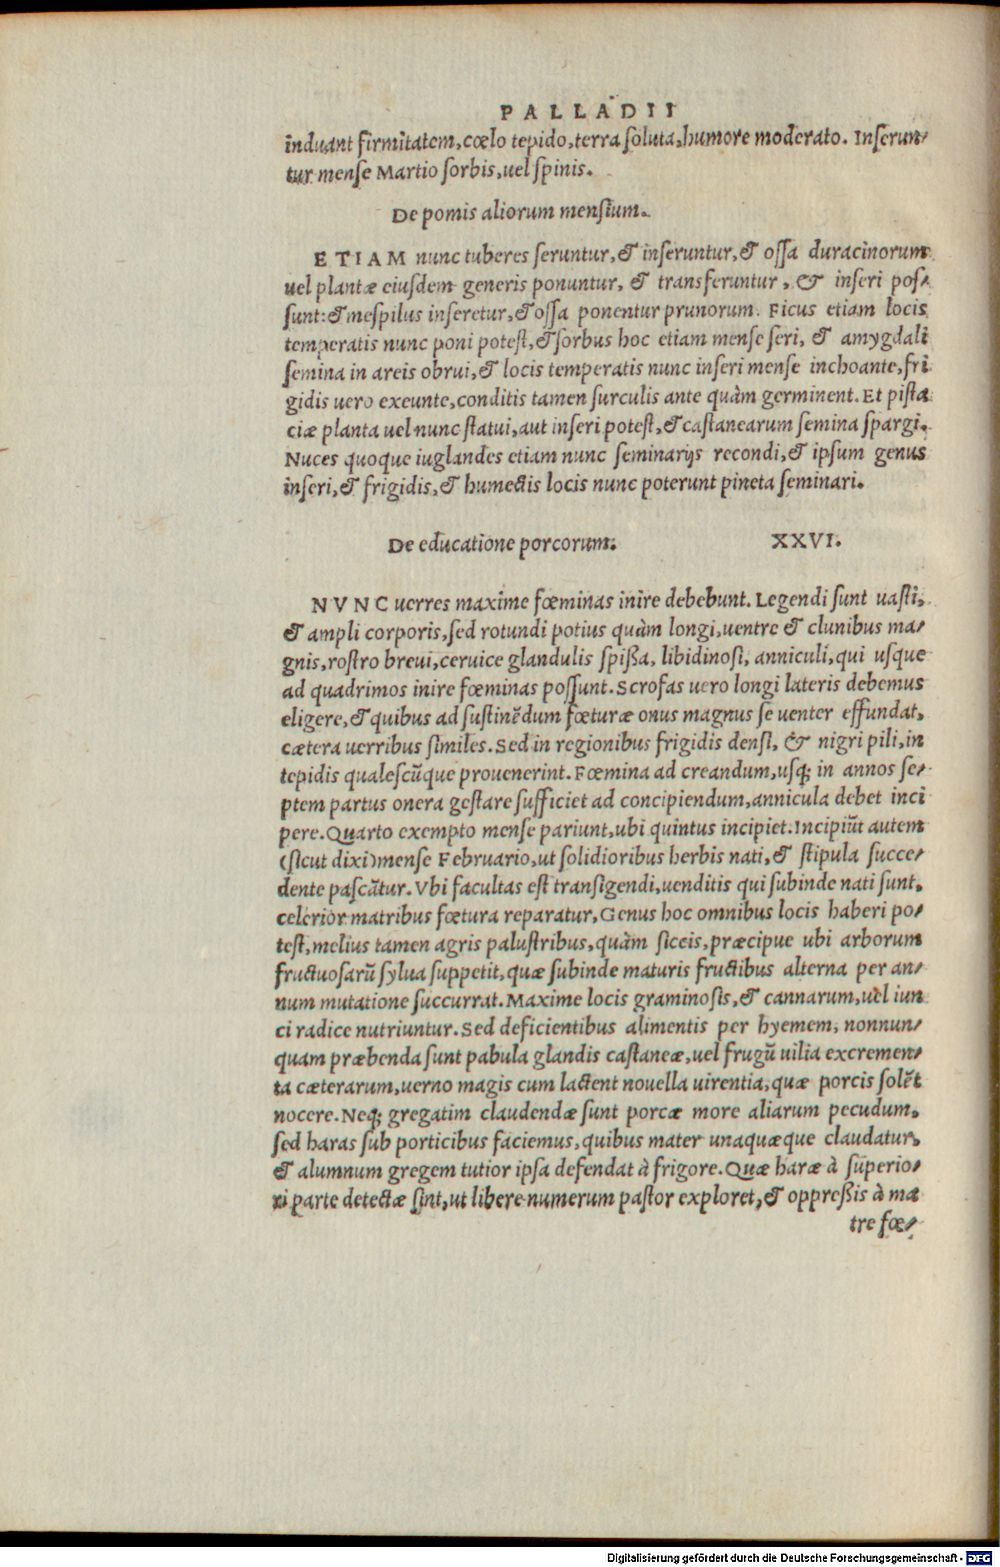 PALLADII
induant firmitatem, cœlo tepido, terra soluta, humore moderato. Inserun-
tur mense Martio sorbis, uel spinis.
De pomis aliorum mensium.
ETIAM nunc tuberes seruntur, & inseruntur, & ossa duracinorum
uel plantæ eiusdem generis ponuntur, & transferuntur, & inseri pos-
sunt: & mespilus inseretur, & ossa ponentur prunorum. Ficus etiam locis
temperatis nunc poni potest, & sorbus hoc etiam mense seri, & amygdali
semina in areis obrui, & locis temperatis nunc inseri mense inchoante, fri
gidis uero exeunte, conditis tamen surculis ante quàm germinent. Et pista
ciæ planta uel nunc statui, aut inseri potest, & castanearum semina spargi.
Nuces quoque iuglandes etiam nunc seminarijs recondi, & ipsum genus
inseri, & frigidis, & humectis locis nunc poterunt pineta seminari.
De educatione porcorum. XXVI.
NVNC uerres maxime fœminas inire debebunt. Legendi sunt uasti,
& ampli corporis, sed rotundi potius quàm longi, uentre & clunibus ma-
gnis, rostro breui, ceruice glandulis spißa, libidinosi, anniculi, qui usque
ad quadrimos inire fœminas possunt. Scrofas uero longi lateris debemus
eligere, & quibus ad sustinẽdum fœturæ onus magnus se uenter effundat,
cætera uerribus similes. Sed in regionibus frigidis densi, & nigri pili, in
tepidis qualescũque prouenerint. Fœmina ad creandum, usq; in annos se-
ptem partus onera gestare sufficiet ad concipiendum, annicula debet inci
pere. Quarto exempto mense pariunt, ubi quintus incipiet. Incipiũt autem
(sicut dixi) mense Februario, ut solidioribus herbis nati, & stipula succe-
dente pascãtur. Vbi facultas est transigendi, uenditis qui subinde nati sunt,
celerior matribus fœtura reparatur, Genus hoc omnibus locis haberi po-
test, melius tamen agris palustribus, quàm siccis, præcipue ubi arborum
fructuosarũ sylua suppetit, quæ subinde maturis fructibus alterna per an-
num mutatione succurrat. Maxime locis graminosis, & cannarum, uel iun
ci radice nutriuntur. Sed deficientibus alimentis per hyemem, nonnun-
quam præbenda sunt pabula glandis castaneæ, uel frugũ uilia excremen-
ta cæterarum, uerno magis cum lactent nouella uirentia, quæ porcis solẽt
nocere. Neq; gregatim claudendæ sunt porcæ more aliarum pecudum,
sed haras sub porticibus faciemus, quibus mater unaquæque claudatur,
& alumnum gregem tutior ipsa defendat à frigore. Quæ haræ à superio-
ri parte detectæ sint, ut libere numerum pastor exploret, & oppreßis à ma
tre fœ-
Digitalisierung gefördert durch die Deutsche Forschungsgemeinschaft - DFG